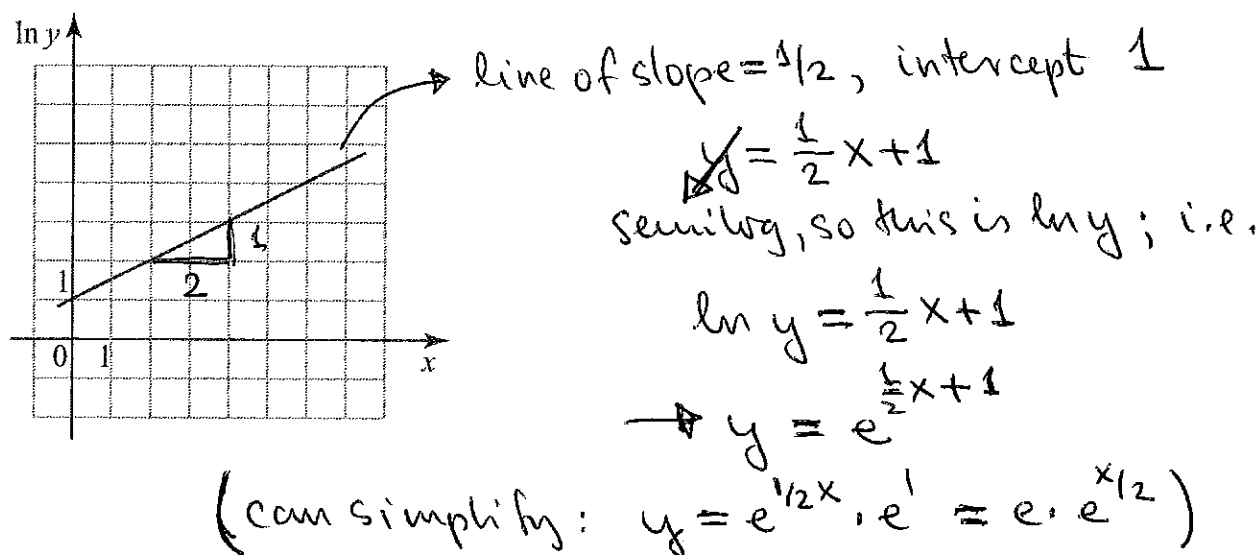 ln y
line of slope = 1/2, intercept 1
y = 1/2 x + 1
semilog, so this is ln y; i.e.
1
2
1
ln y = 1/2 x + 1
0 1 x
→ y = e^{1/2 x + 1}
(can simplify: y = e^{1/2 x} · e^1 = e · e^{x/2})